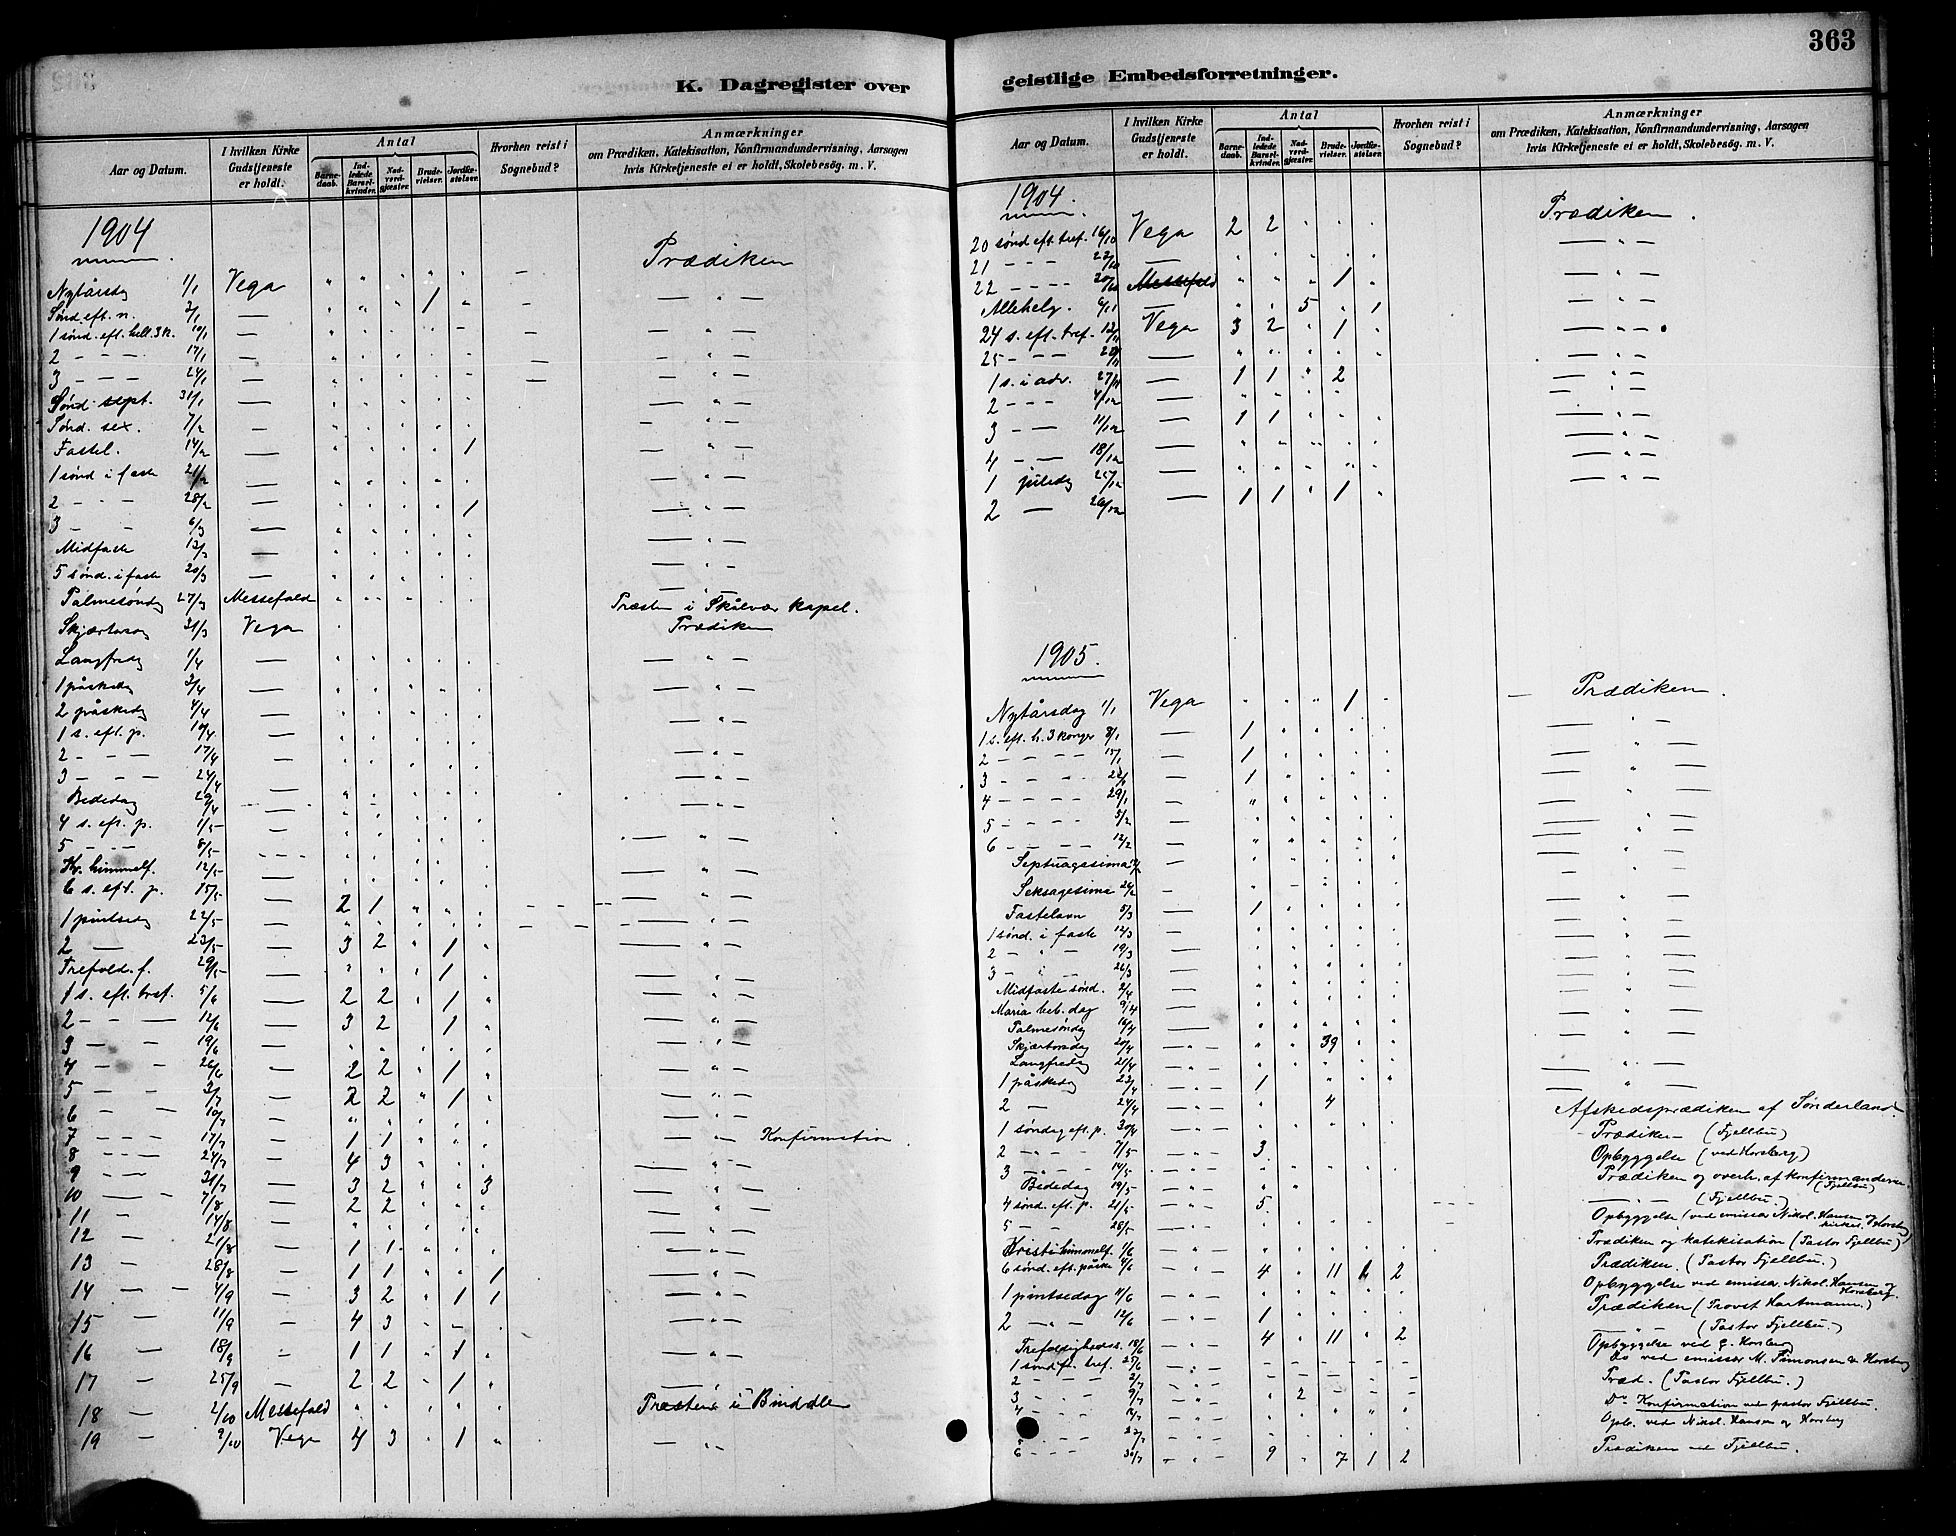 363
K. Dagregister over
geistlige Embedsforretninger.
Aar og Datum. I hvilken Kirke Gudstjeneste er holdt. Antal Barnedaab. Indledede Barselkvinder. Nadverdgjæster. Brudevielser. Jordfæstelser. Hvorhen reist i Sognebud? Anmærkninger om Prædiken, Katekisation, Konfirmandundervisning, Aarsagen hvis Kirketjeneste ei er holdt, Skolebesög. m. V.
1904
Nytårsdag 1/1 Vega " " " " " - Prædiken
Sønd. eft. n. 3/1 — " " " 1 " — " —
1 sønd. eft. hell. 3 K. 10/1 — — " —
2 - - - 17/1 — — " —
3 - - - 24/1 — — " —
Sønd. sept. 31/1 — — " —
Sønd. sex. 7/2 — — " —
Fastel. 14/2 — 1 — " —
1 sønd i faste 21/2 — — " —
2 - - 28/2 — 1 — " —
3 - - 6/3 — — " —
Midfaste 13/3 — — " —
5 sønd. i faste 20/3 — — " —
Palmesøndag 27/3 Messefald Præsten i Skålvær kapel.
Skjærtorsdag 31/3 Vega Prædiken
Langfredag 1/4 — — " —
1 påskedag 3/4 — — " —
2 påskedag 4/4 — — " —
1 s. eft. p. 10/4 — — " —
2 - - - 17/4 — — " —
3 - - - 24/4 — — " —
Bededag 29/4 —
4 s. eft. p. 1/5 — — " —
5 - - - 8/5 — — " —
Kr. himmelf. 12/5 — — " —
6 s. eft. p. 15/5 — 2 1 — " —
1 pintsedag 22/5 — — " —
2 — 23/5 — 3 2 " 1 " — " —
Trefold. f. 29/5 — " " 1 — " —
1 s. eft. tref. 5/6 — 2 2 " 1 " — " —
2 - - - 12/6 — 3 2 1 " — " —
3 - - 19/6 — — " —
4 — — 26/6 — 2 2 " 1 " — " —
5 — — 3/7 — 2 2 " 1 " — " —
6 - - 10/7 — — " —
7 - - - 17/7 — 1 1 " — " — Konfirmation.
8 - - - 24/7 — 4 3 — " —
9 - - 31/7 — 3 2 " " 3 — " —
10 — - 7/8 — 2 2 — " —
11 - 14/8 — — " —
12 - 21/8 — 1 1 — " —
13 - 28/8 — 1 1 " " 1 — " —
14 - - 4/9 — 3 2 " 1 1 — " —
15 - 11/9 — 4 3 — " —
16 — 18/9 — 1 1 " 1 " — " —
17 — 25/9 — 2 2 " 1 " — " —
18 — 2/10 Messefald Præsten i Bindalen
19 — 9/10 Vega 4 3 " 1 " — " —
Aar og Datum. I hvilken Kirke Gudstjeneste er holdt. Antal Barnedaab. Indledede Barselkvinder. Nadverdgjæster. Brudevielser. Jordfæstelser. Hvorhen reist i Sognebud? Anmærkninger om Prædiken, Katekisation, Konfirmandundervisning, Aarsagen hvis Kirketjeneste ei er holdt, Skolebesög. m. V.
1904.
20 sønd eft. tref. 16/10 Vega 2 2 " " " Prædiken.
21 - - - 23/10 — — " —
22 - - - - 30/10 Messefald " " " 1 " — " —
Allehelg. 6/11 — " " 5 " 1 — " —
24 s. eft. tref. 13/11 Vega 3 2 " 1 " — " —
25 - - - 20/11 — — " —
1 s. i adv. 27/11 — 1 1 " 2 — " —
2 - - - 4/12 — — " —
3 - — 11/12 — 1 1 — " —
4 — — 18/12 — — " —
1 juledag 25/12 — — " —
2 — 26/12 — 1 1 " 1 " — " —
1905.
Nytårsdag 1/1 Vega " " " 1 " — Prædiken.
1 s. eft. h. 3 konger 8/1 — 1 — " —
2 - - - - 15/1 — 1 — " —
3 - - - - 22/1 — 1 — " —
4 - - - - 29/1 — — " —
5 - - - - 5/2 — — " —
6 - - - - 12/2 — — " —
Septuagesima — — " —
Seksagesima 26/2 - — " —
Fastelavn 5/3 — 1 — " —
1 sønd. i faste 12/3 — — " —
2 - " - 19/3 — — " —
3 - " - 26/3 — — " —
Midfaste sønd. 2/4 — — " —
Maria beb. dag 9/4 — — " —
Palmesøndag 16/4 — — " —
Skjærtorsdag 20/4 - " - 39 — " —
Langfredag 21/4 - " - — " —
1 påskedag 23/4 - " - 1 — " —
2 — 24/4 - " - 4 Afskedsprædiken af Sønderland
1 søndag eft. p. 30/4 - " - Prædiken (Fjellbu)
2 - " - 7/5 - " - 3 Opbyggelse (ved Horsberg)
3 - " - 14/5 - " - Prædiken og overh. af konfirmanderne (Fjellbu)
Bededag 19/5 - " - — " — (Fjellbu)
4 sønd. eft. p. 21/5 - " - 5 Opbyggelse (ved emissær Nikol. Hansen og kirkes. Horsberg)
5 - - 28/5 - " - Prædiken og katekisation (Pastor Fjellbu)
Kristi himmelf. 1/6 - " - Prædiken. (Pastor Fjellbu.)
6 sønd. eft. påske 4/6 - " - 4 " 11 2 Opbyggelse ved emissær Nikol. Hansen og Horsberg.
1 pintsedag 11/6 - " - Prædiken (Provst Hartmann.)
2 - " - 12/6 - " - 1 — " — (Pastor Fjellbu.)
Trefoldigheds. 18/6 - " - 4 " 11 " 2 Opbyggelse ved E. Horsberg
1 sønd. e. tref. 25/6 - " - Do ved emissær M. Simonsen & Horsberg
2 - - - 2/7 - " - Præd. (Pastor Fjellbu.)
3 - - 9/7 - " - 2 Do Konfirmation ved pastor Fjellbu.
4 - - - " - Opb. ved Nikol. Hansen og Horsberg
5 - - - 23/7 - " -
6 - - - 30/7 - " - 9 " 7 1 2 Prædiken ved Fjellbu.